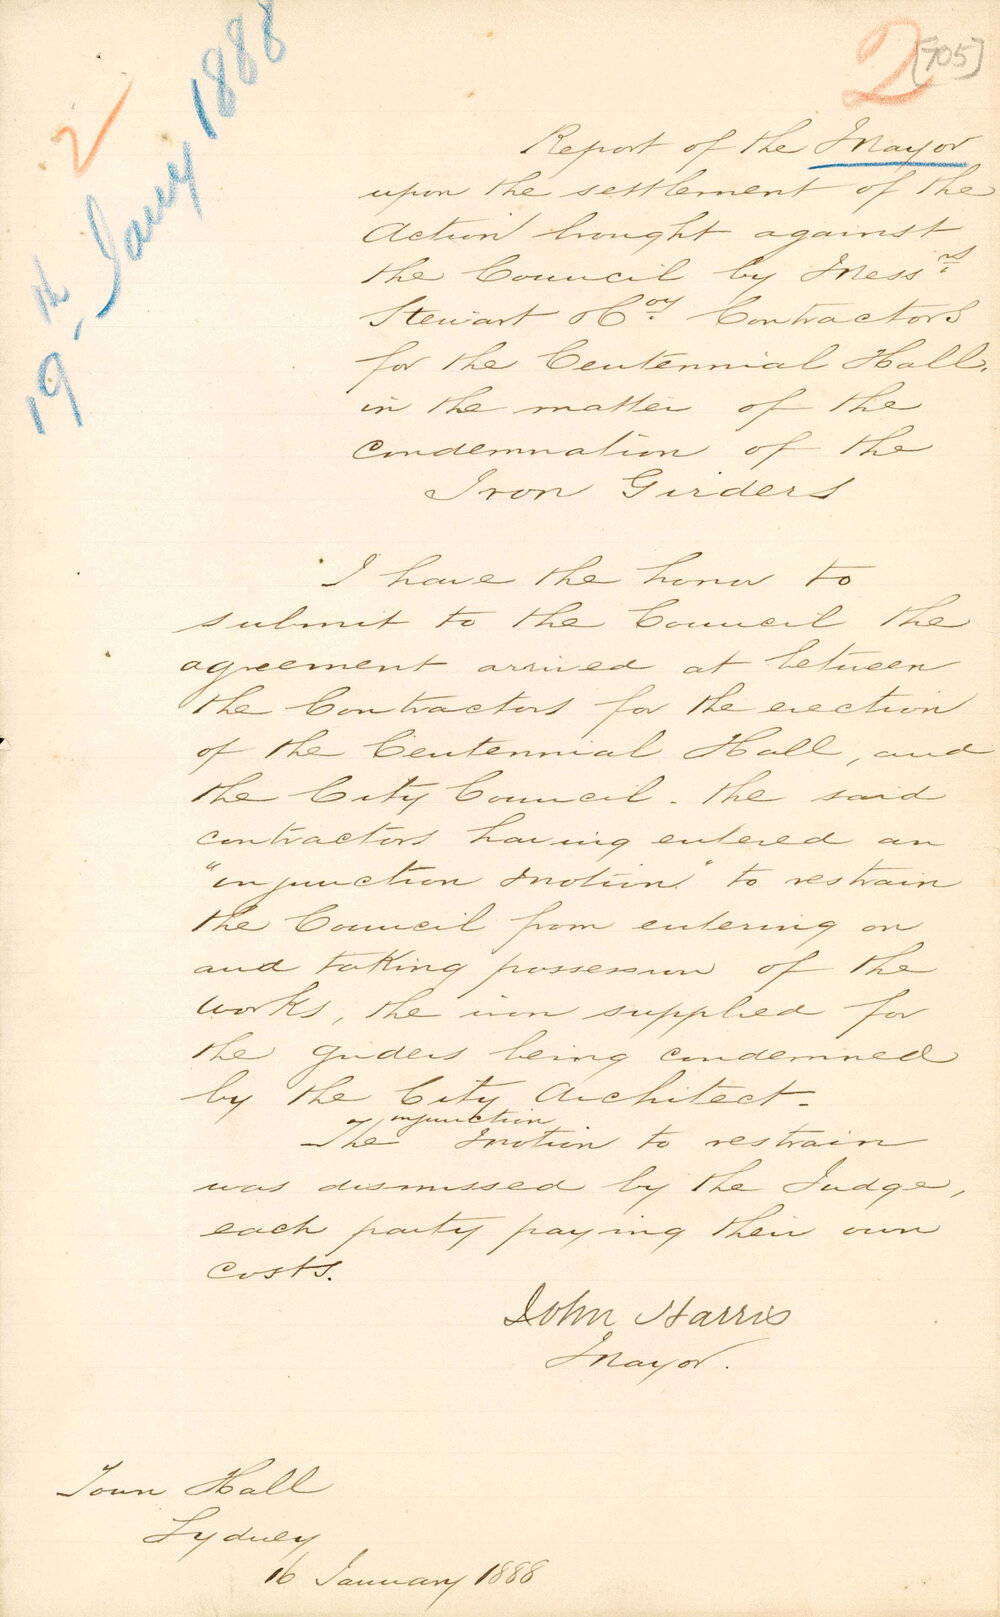 19th Jany 1888
2
2
[705]
Report of the Mayor
upon the settlement of the
Action brought against
the Council by Messrs.
Stewart & Coy. Contractors
for the Centennial Hall.
in the matter of the
condemnation of the
Iron Girders
I have the honor to
submit to the Council the
agreement arrived at between
the Contractors for the erection
of the Centennial Hall, and
the City Council. the said
contractors having entered an
"injunction motion" to restrain
the Council from entering on
and taking possession of the
works, the iron supplied for
the girders being condemned
by the City Architect.
The injunction motion to restrain
was dismissed by the Judge,
each party paying their own
costs.
John Harris
Mayor.
Town Hall
Sydney
16 January 1888